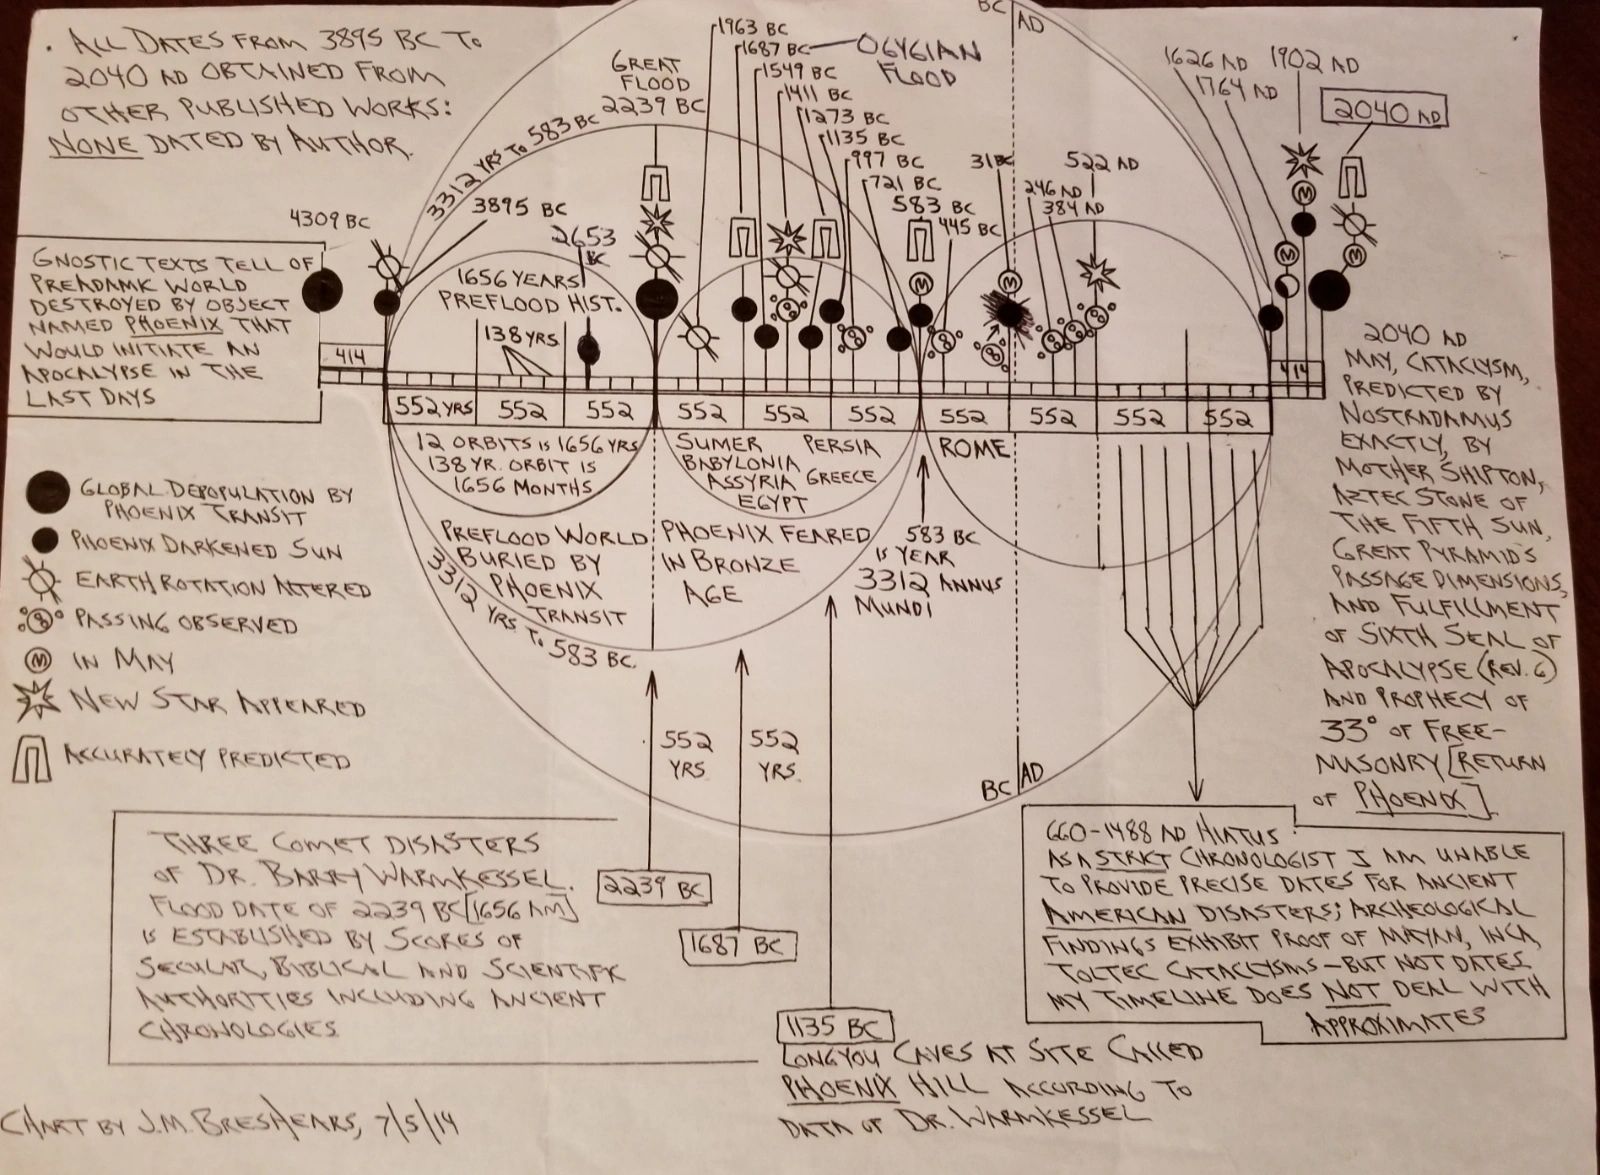 . ALL DATES FROM 3895 BC TO
2040 AD OBTAINED FROM
OTHER PUBLISHED WORKS:
NONE DATED BY AUTHOR.
GREAT
FLOOD
2239 BC
1963 BC
1687 BC — OGYGIAN
FLOOD
1549 BC
1411 BC
1273 BC
1135 BC
997 BC
721 BC
583 BC
445 BC
BC AD
31 BC
246 AD
384 AD
522 AD
1626 AD
1764 AD
1902 AD
2040 AD
4309 BC
3312 YRS TO 583 BC
3895 BC
2653
BC
GNOSTIC TEXTS TELL OF
PREADAMIC WORLD
DESTROYED BY OBJECT
NAMED PHOENIX THAT
WOULD INITIATE AN
APOCALYPSE IN THE
LAST DAYS
1656 YEARS
PREFLOOD HIST.
138 YRS
M
M
M
M
M
414
414
552 YRS 552 552 552 552 552 552 552 552 552
12 ORBITS IS 1656 YRS
138 YR. ORBIT IS
1656 MONTHS
SUMER PERSIA
BABYLONIA
ASSYRIA GREECE
EGYPT
ROME
PREFLOOD WORLD
BURIED BY
PHOENIX
TRANSIT
3312 YRS TO 583 BC.
PHOENIX FEARED
IN BRONZE
AGE
583 BC
IS YEAR
3312 ANNUS
MUNDI
2040 AD
MAY, CATACLYSM,
PREDICTED BY
NOSTRADAMUS
EXACTLY, BY
MOTHER SHIPTON,
AZTEC STONE OF
THE FIFTH SUN,
GREAT PYRAMID'S
PASSAGE DIMENSIONS,
AND FULFILLMENT
OF SIXTH SEAL OF
APOCALYPSE (REV. 6)
AND PROPHECY OF
33° OF FREE-
MASONRY [RETURN
OF PHOENIX].
GLOBAL DEPOPULATION BY
PHOENIX TRANSIT
PHOENIX DARKENED SUN
EARTH ROTATION ALTERED
PASSING OBSERVED
M IN MAY
NEW STAR APPEARED
ACCURATELY PREDICTED
552
YRS
552
YRS.
BC AD
THREE COMET DISASTERS
OF DR. BARRY WARMKESSEL.
FLOOD DATE OF 2239 BC [1656 AM]
IS ESTABLISHED BY SCORES OF
SECULAR, BIBLICAL AND SCIENTIFIC
AUTHORITIES INCLUDING ANCIENT
CHRONOLOGIES
2239 BC
1687 BC
1135 BC
LONGYOU CAVES AT SITE CALLED
PHOENIX HILL ACCORDING TO
DATA OF DR. WARMKESSEL
660-1488 AD HIATUS:
AS A STRICT CHRONOLOGIST I AM UNABLE
TO PROVIDE PRECISE DATES FOR ANCIENT
AMERICAN DISASTERS; ARCHEOLOGICAL
FINDINGS EXHIBIT PROOF OF MAYAN, INCA,
TOLTEC CATACLYSMS — BUT NOT DATES
MY TIMELINE DOES NOT DEAL WITH
APPROXIMATES
CHART BY J.M. BRESHEARS, 7/5/14